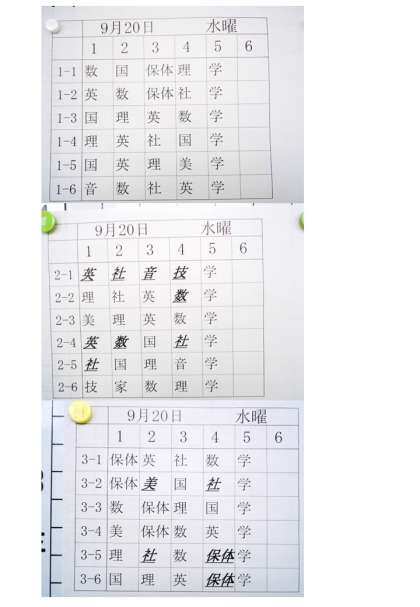 9月20日 水曜
1 2 3 4 5 6
1-1 数 国 保体 理 学
1-2 英 数 保体 社 学
1-3 国 理 英 数 学
1-4 理 英 社 国 学
1-5 国 英 理 美 学
1-6 音 数 社 英 学
9月20日 水曜
1 2 3 4 5 6
2-1 英 社 音 技 学
2-2 理 社 英 数 学
2-3 美 理 英 数 学
2-4 英 数 国 社 学
2-5 社 国 理 音 学
2-6 技 家 数 理 学
9月20日 水曜
1 2 3 4 5 6
3-1 保体 英 社 数 学
3-2 保体 美 国 社 学
3-3 数 保体 理 国 学
3-4 美 保体 数 英 学
3-5 理 社 数 保体 学
3-6 国 理 英 保体 学